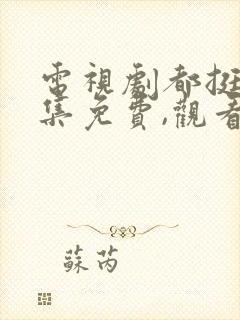 電視劇都挺
集免費,觀看
蘇芮